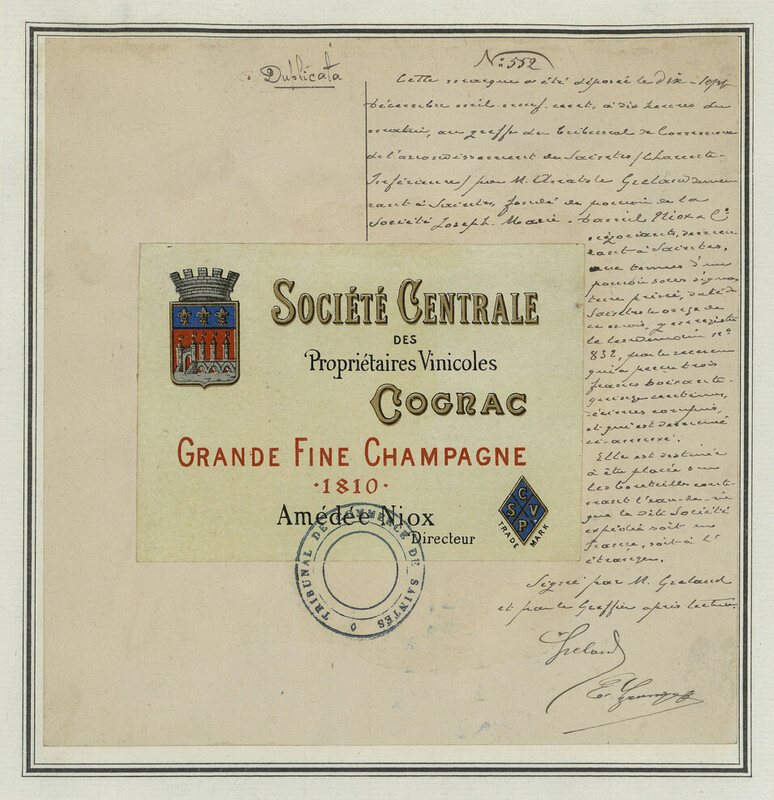 Duplicata
N° 552
Cette marque a été déposée le dix-sept
décembre mil neuf cent, à dix heures du
matin, au greffe du Tribunal de Commerce
de l'arrondissement de Saintes (Charente-
Inférieure) par M. Anatole Grelaud demeu
rant à Saintes, fondé de pouvoir de la
Société Joseph-Marie-Daniel Niox & Cie
négociants, demeu
rant à Saintes,
aux termes d'un
pouvoir sous signa
ture privé, daté de
Saintes le onze de
ce mois, y enregistré
le lendemain n°
832, par le receveur
qui a perçu trois
francs soixante-
quinze centimes,
décimes compris,
et qui est demeuré
ci-annexé.
Elle est destinée
à être placée sur
les bouteilles conte
nant l'eau-de-vie
que la dite Société
expédie soit en
France, soit à l'
étranger.
Signé par M. Grelaud
et par le Greffier après lecture.
Grelaud
SOCIÉTÉ CENTRALE
DES
Propriétaires Vinicoles
COGNAC
GRANDE FINE CHAMPAGNE
·1810·
Amédée Niox
Directeur
C
S V
P
TRADE MARK
TRIBUNAL DE COMMERCE DE SAINTES